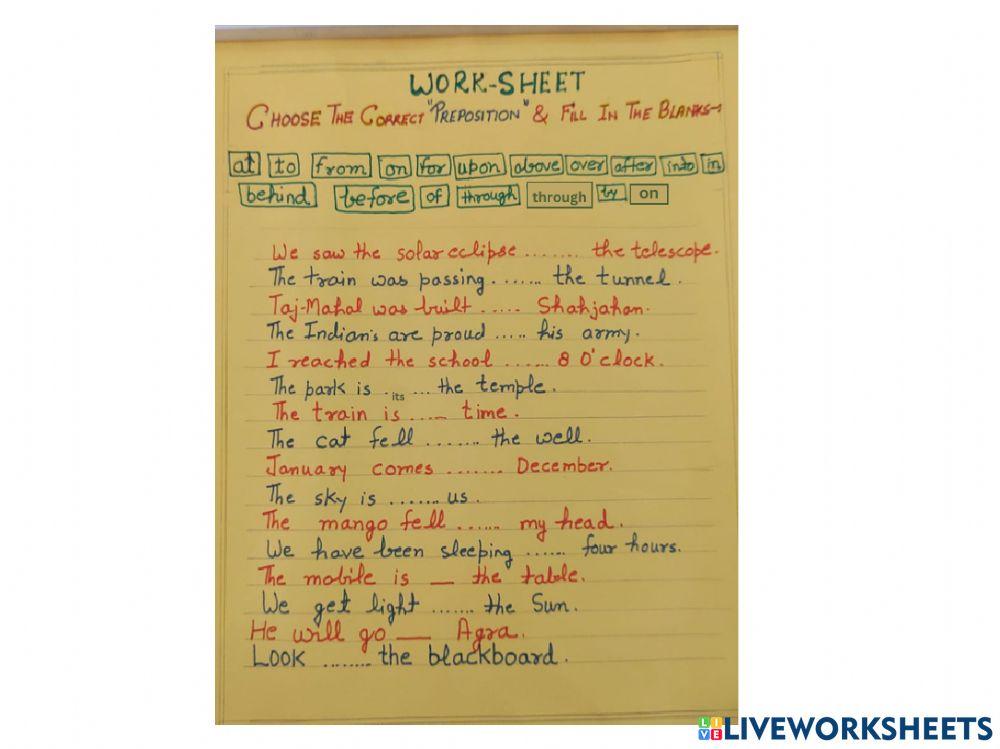 WORK-SHEET
CHOOSE THE CORRECT "PREPOSITION" & FILL IN THE BLANKS→
at to from on for upon above over after into in
behind before of through through by on
We saw the solar eclipse ........ the telescope.
The train was passing ....... the tunnel.
Taj-Mahal was built ..... Shahjahan.
The Indian's are proud ..... his army.
I reached the school ....... 8 O'clock.
The park is . its ... the temple.
The train is .... time.
The cat fell ....... the well.
January comes ........ December.
The sky is ....... us.
The mango fell ...... my head.
We have been sleeping ...... four hours.
The mobile is __ the table.
We get light ....... the Sun.
He will go ___ Agra.
LOOK ........ the blackboard.
LIVE LIVEWORKSHEETS